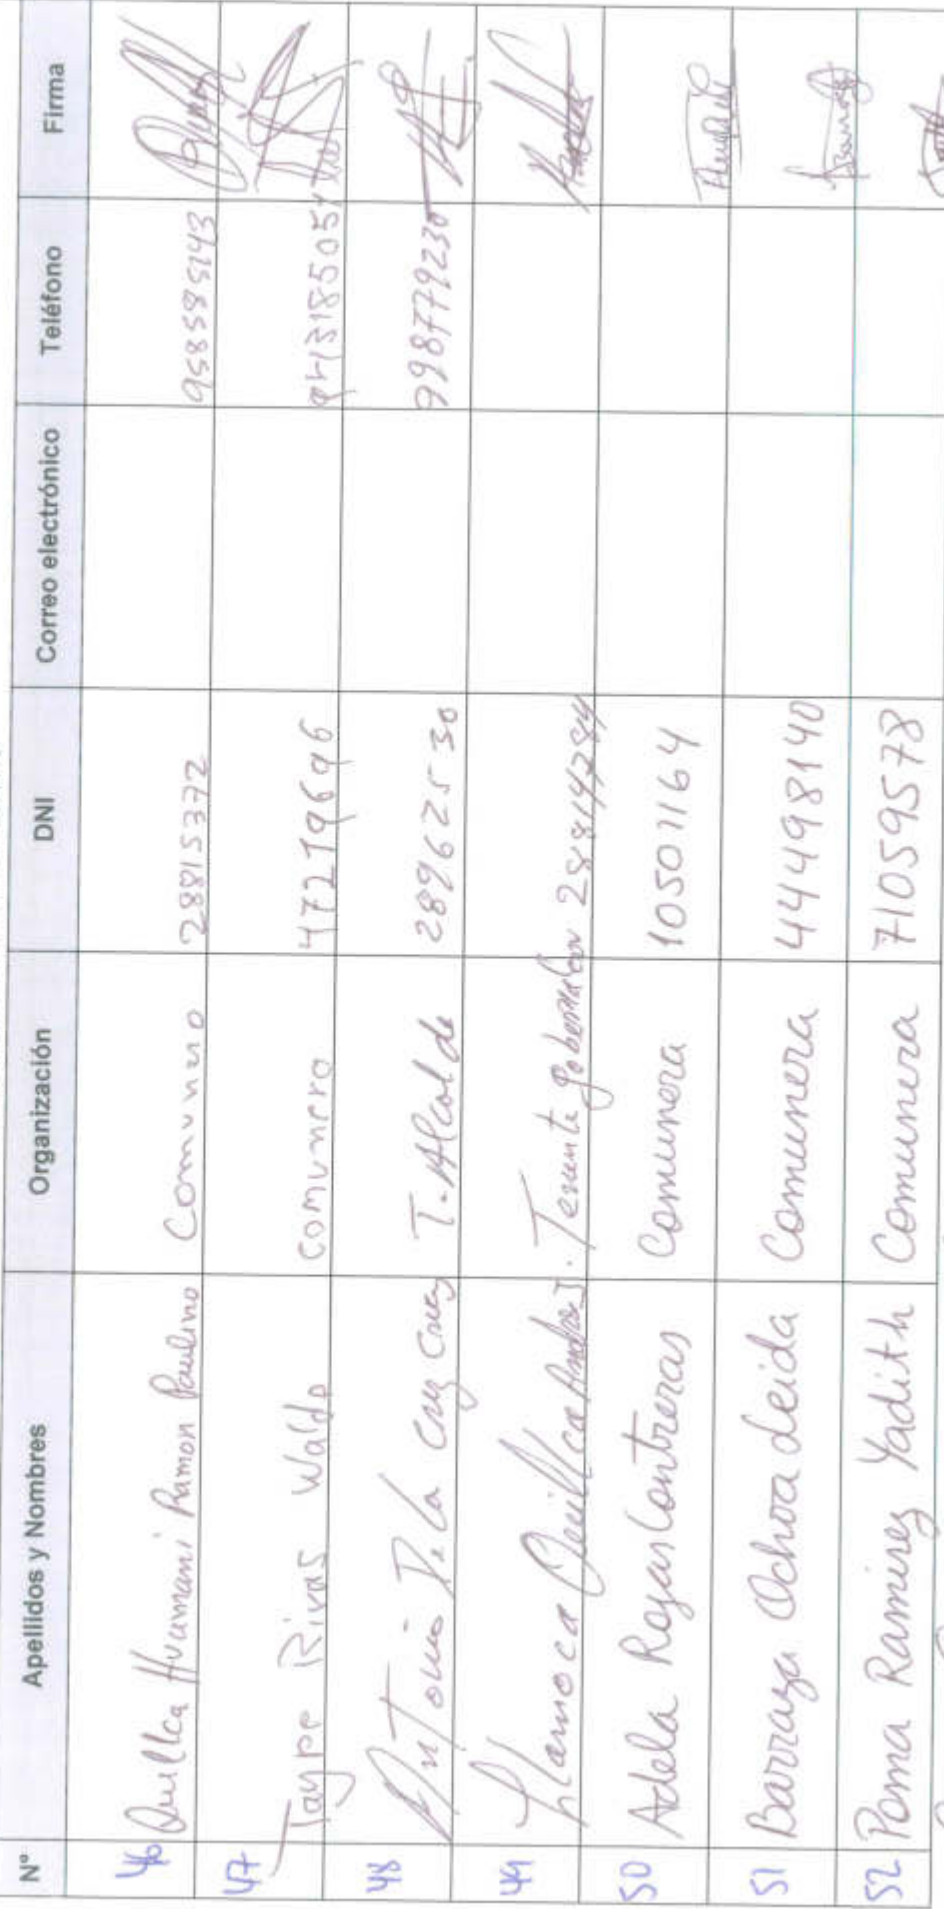 N° Apellidos y Nombres Organización DNI Correo electrónico Teléfono Firma
46 Quillca Huamani Ramon Paulino Comunero 28815372 958585143
47 Taype Rivas Waldo comunero 47219696
48 Antonio De la Cruz Cruz T. Alcalde 28962530 998779230
49 Llamoca Quillca Andres J. Teniente gobernador 28814784
50 Adela Rojas Contreras Comunera 10501164
51 Barraza Ochoa Leida Comunera 44498140
52 Poma Ramirez Yadith Comunera 71059578